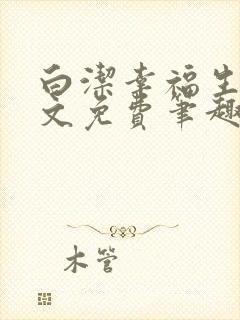 白潔幸福生
文免費筆趣
木管